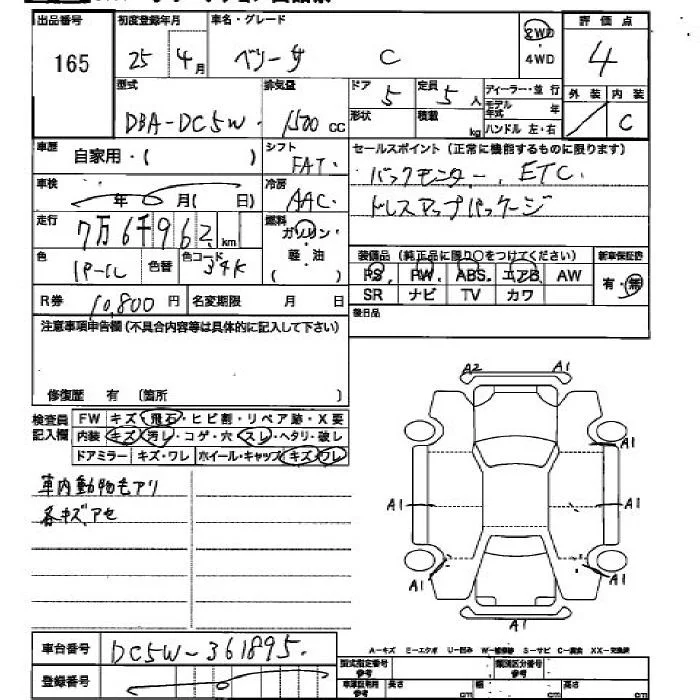 出品番号 初度登録年月 車名・グレード 2WD・4WD 評価点
165 25年 4月 ベリーサ C 4
型式 排気量 ドア 5 定員 5人 ディーラー・並行 外装 内装
DBA-DC5W 1500cc 形状 積載 kg モデル年式 年 C
ハンドル 左・右
車歴 自家用・( ) シフト FAT セールスポイント (正常に機能するものに限ります)
車検 年 月( 日) 冷房 AAC バックモニター, ETC.
走行 7万6千962km 燃料 ガソリン・軽・油 ( ) ドレスアップパッケージ
色 パール 色替 色コード 34K 装備品 (純正品に限り○をつけてください) 新車保証書
PS PW ABS エアB AW 有・無
R券 10,800円 名変期限 月 日 SR ナビ TV カワ
注意事項申告欄(不具合内容等は具体的に記入して下さい) 後日品
修復歴 有 〔箇所 〕
検査員記入欄 FW キズ・飛石・ヒビ割・リペア跡・X要
内装 キズ・汚レ・コゲ・穴・スレ・ヘタリ・破レ
ドアミラー キズ・ワレ ホイール・キャップ キズ・ワレ
車内動物毛アリ
各キズ、アセ
A2 A1
A1
A1 A1 A1
A1 A1
A1
車台番号 DC5W-361895
登録番号
A-キズ E-エクボ U-凹み W-補修跡 S-サビ C-腐食 XX-交換済
型式指定番号 参考 類別区分番号 参考
長さ cm 幅 cm 高さ cm